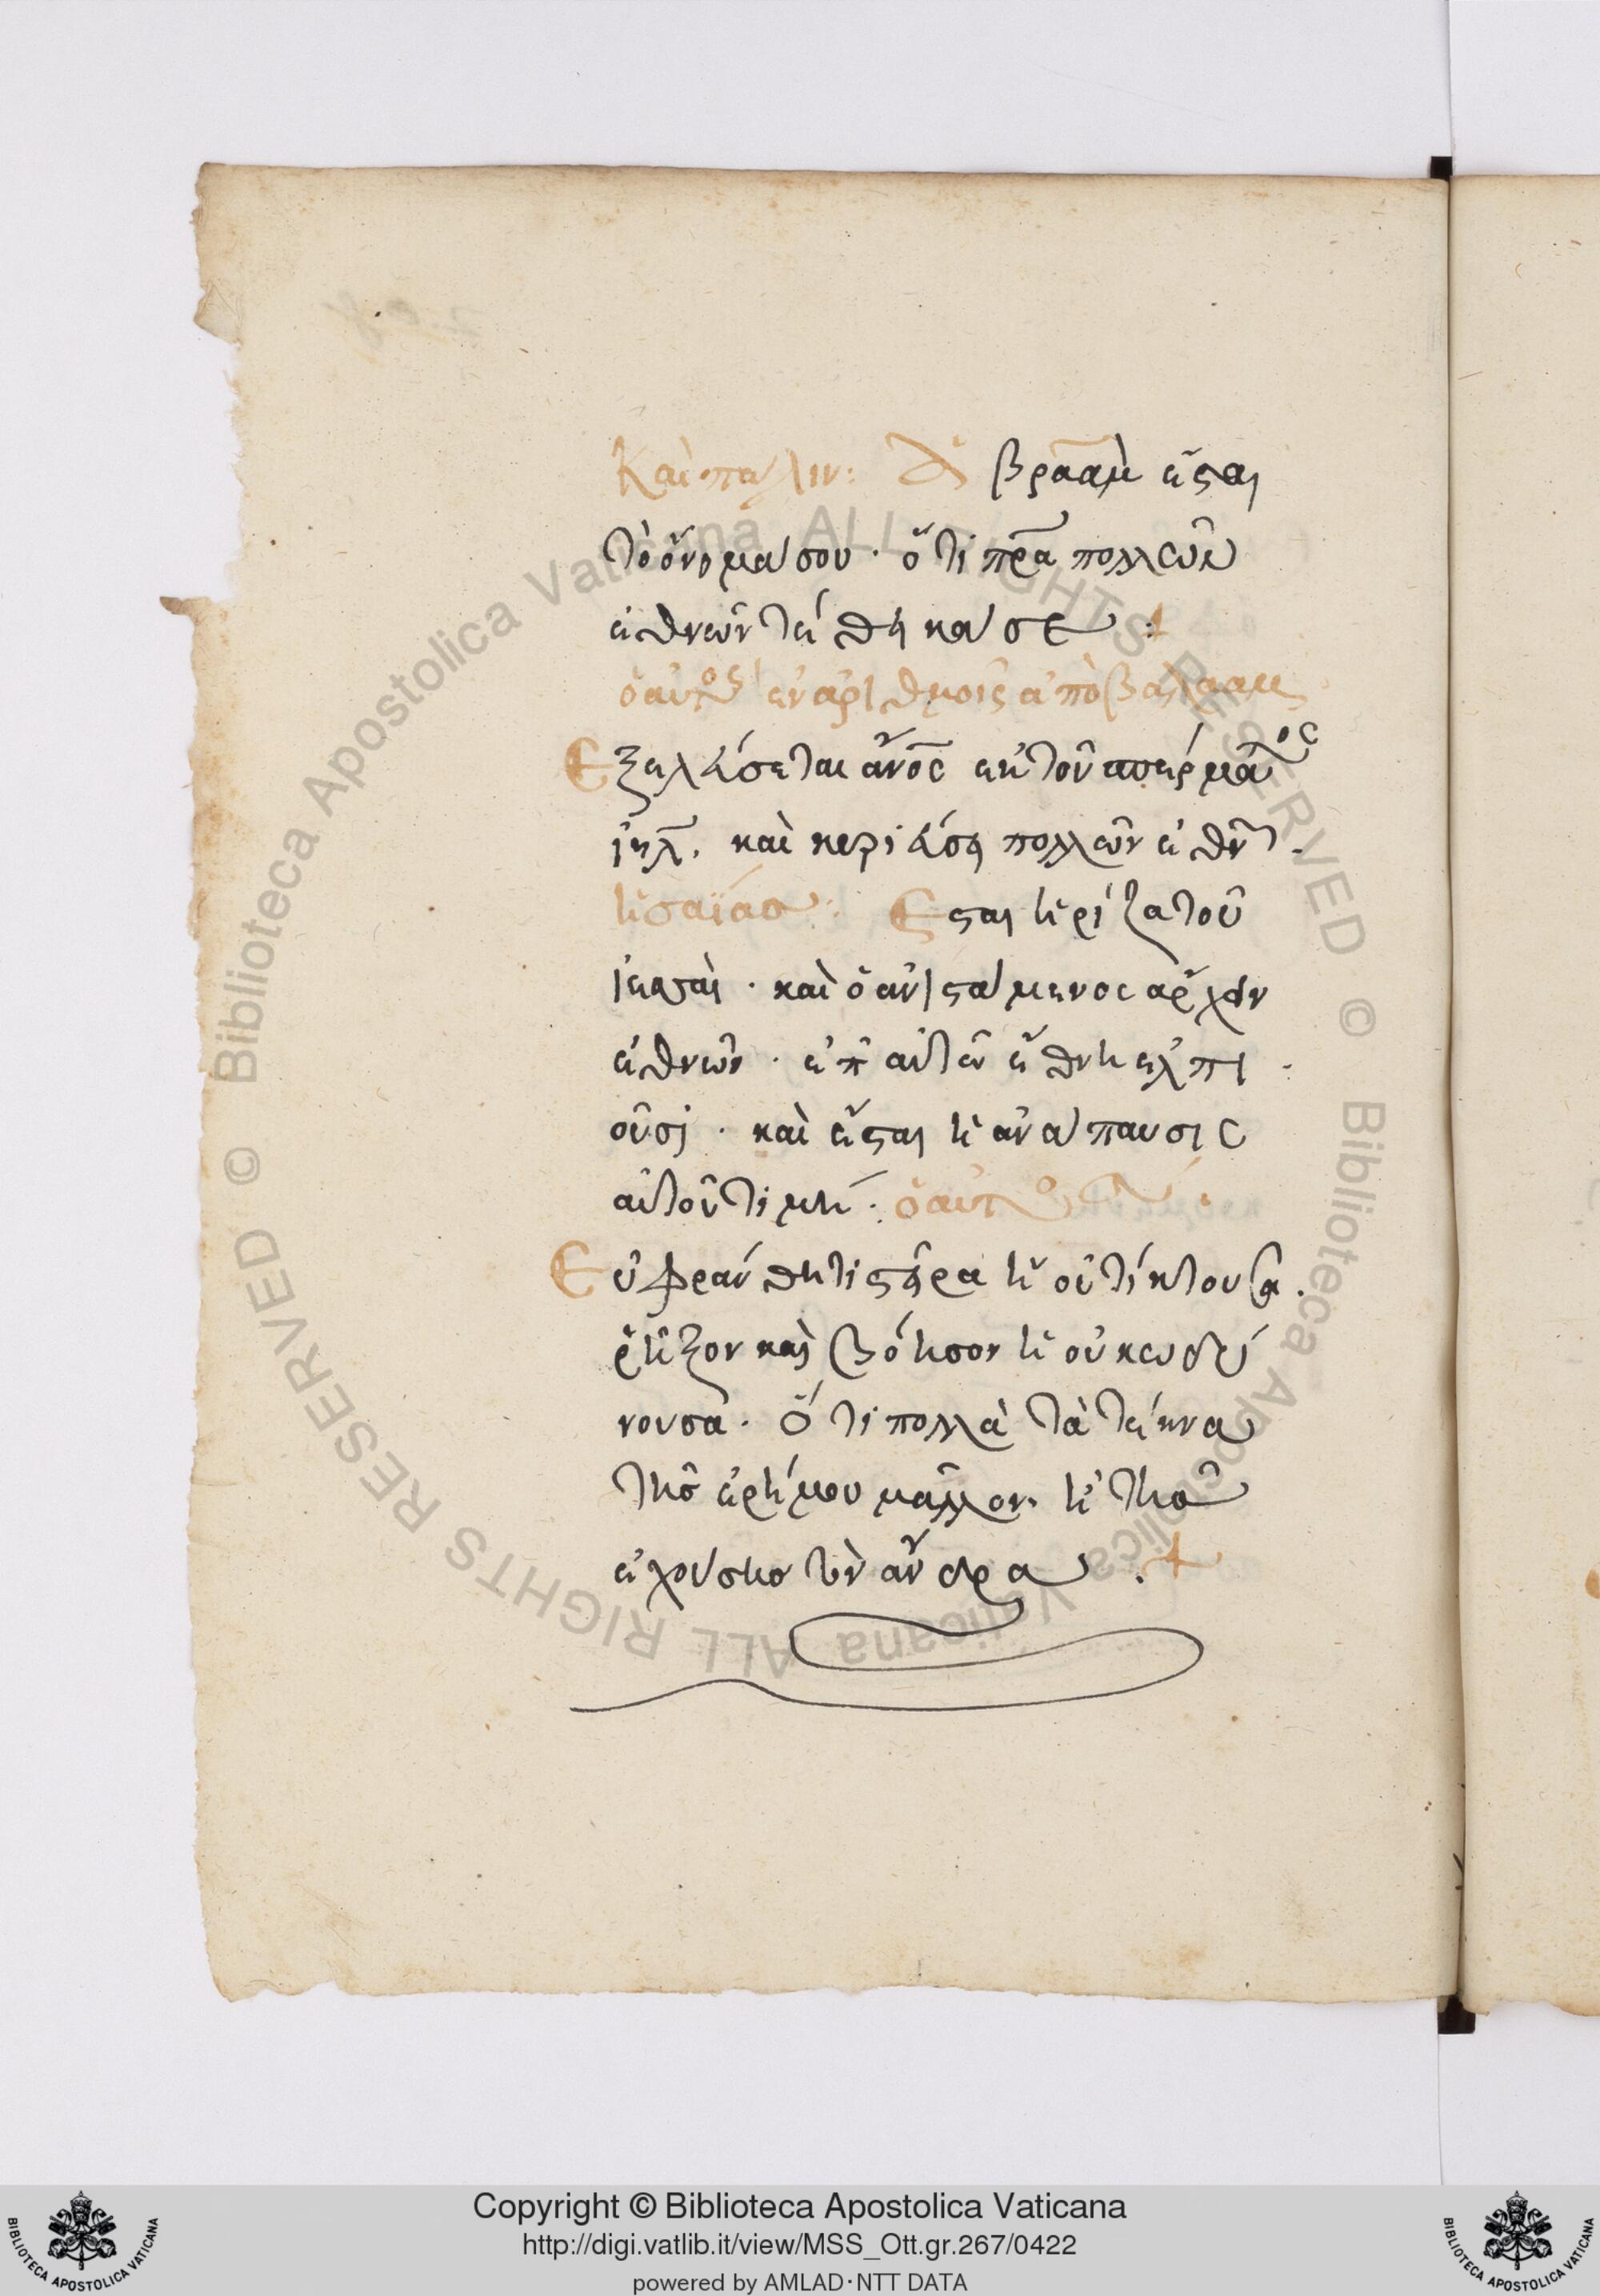 Καὶ πάλιν: Ἀβραὰμ ἔσται
τὸ ὄνομά σου · ὅτι πρ̅α πολλῶν
ἐθνῶν τέθηκά σε :+
ὁ αὐτὸς ἐν ἀριθμοῖς ἀπὸ βαλααμ
Ἐξελεύσεται ἄν̅ο̅ς ἐκ τοῦ σπέρματος
ι̅η̅λ̅. καὶ κυριεύσει πολλῶν ἐθνῶν.
ἡσαΐας: Ἔσται ἡ ῥίζα τοῦ
ἰεσσαὶ · καὶ ὁ ἀνιστάμενος ἄρχειν
ἐθνῶν · ἐπ' αὐτῶ ἔθνη ἐλπι
οῦσι · καὶ ἔσται ἡ ἀνάπαυσις
αὐτοῦ τιμή · ὁ αὐτὸς
Εὐφράνθητι στεῖρα ἡ οὐ τίκτουσα.
ῥῆξον καὶ βόησον ἡ οὐκ ὠδί
νουσα. Ὅτι πολλὰ τὰ τέκνα
τῆς ἐρήμου μᾶλλον. ἢ τῆς
ἐχούσης τὸν ἄνδρα .+
Copyright © Biblioteca Apostolica Vaticana
http://digi.vatlib.it/view/MSS_Ott.gr.267/0422
powered by AMLAD·NTT DATA
BIBLIOTECA APOSTOLICA VATICANA
BIBLIOTECA APOSTOLICA VATICANA
© Biblioteca Apostolica Vaticana ALL RIGHTS RESERVED © Biblioteca Apostolica Vaticana ALL RIGHTS RESERVED